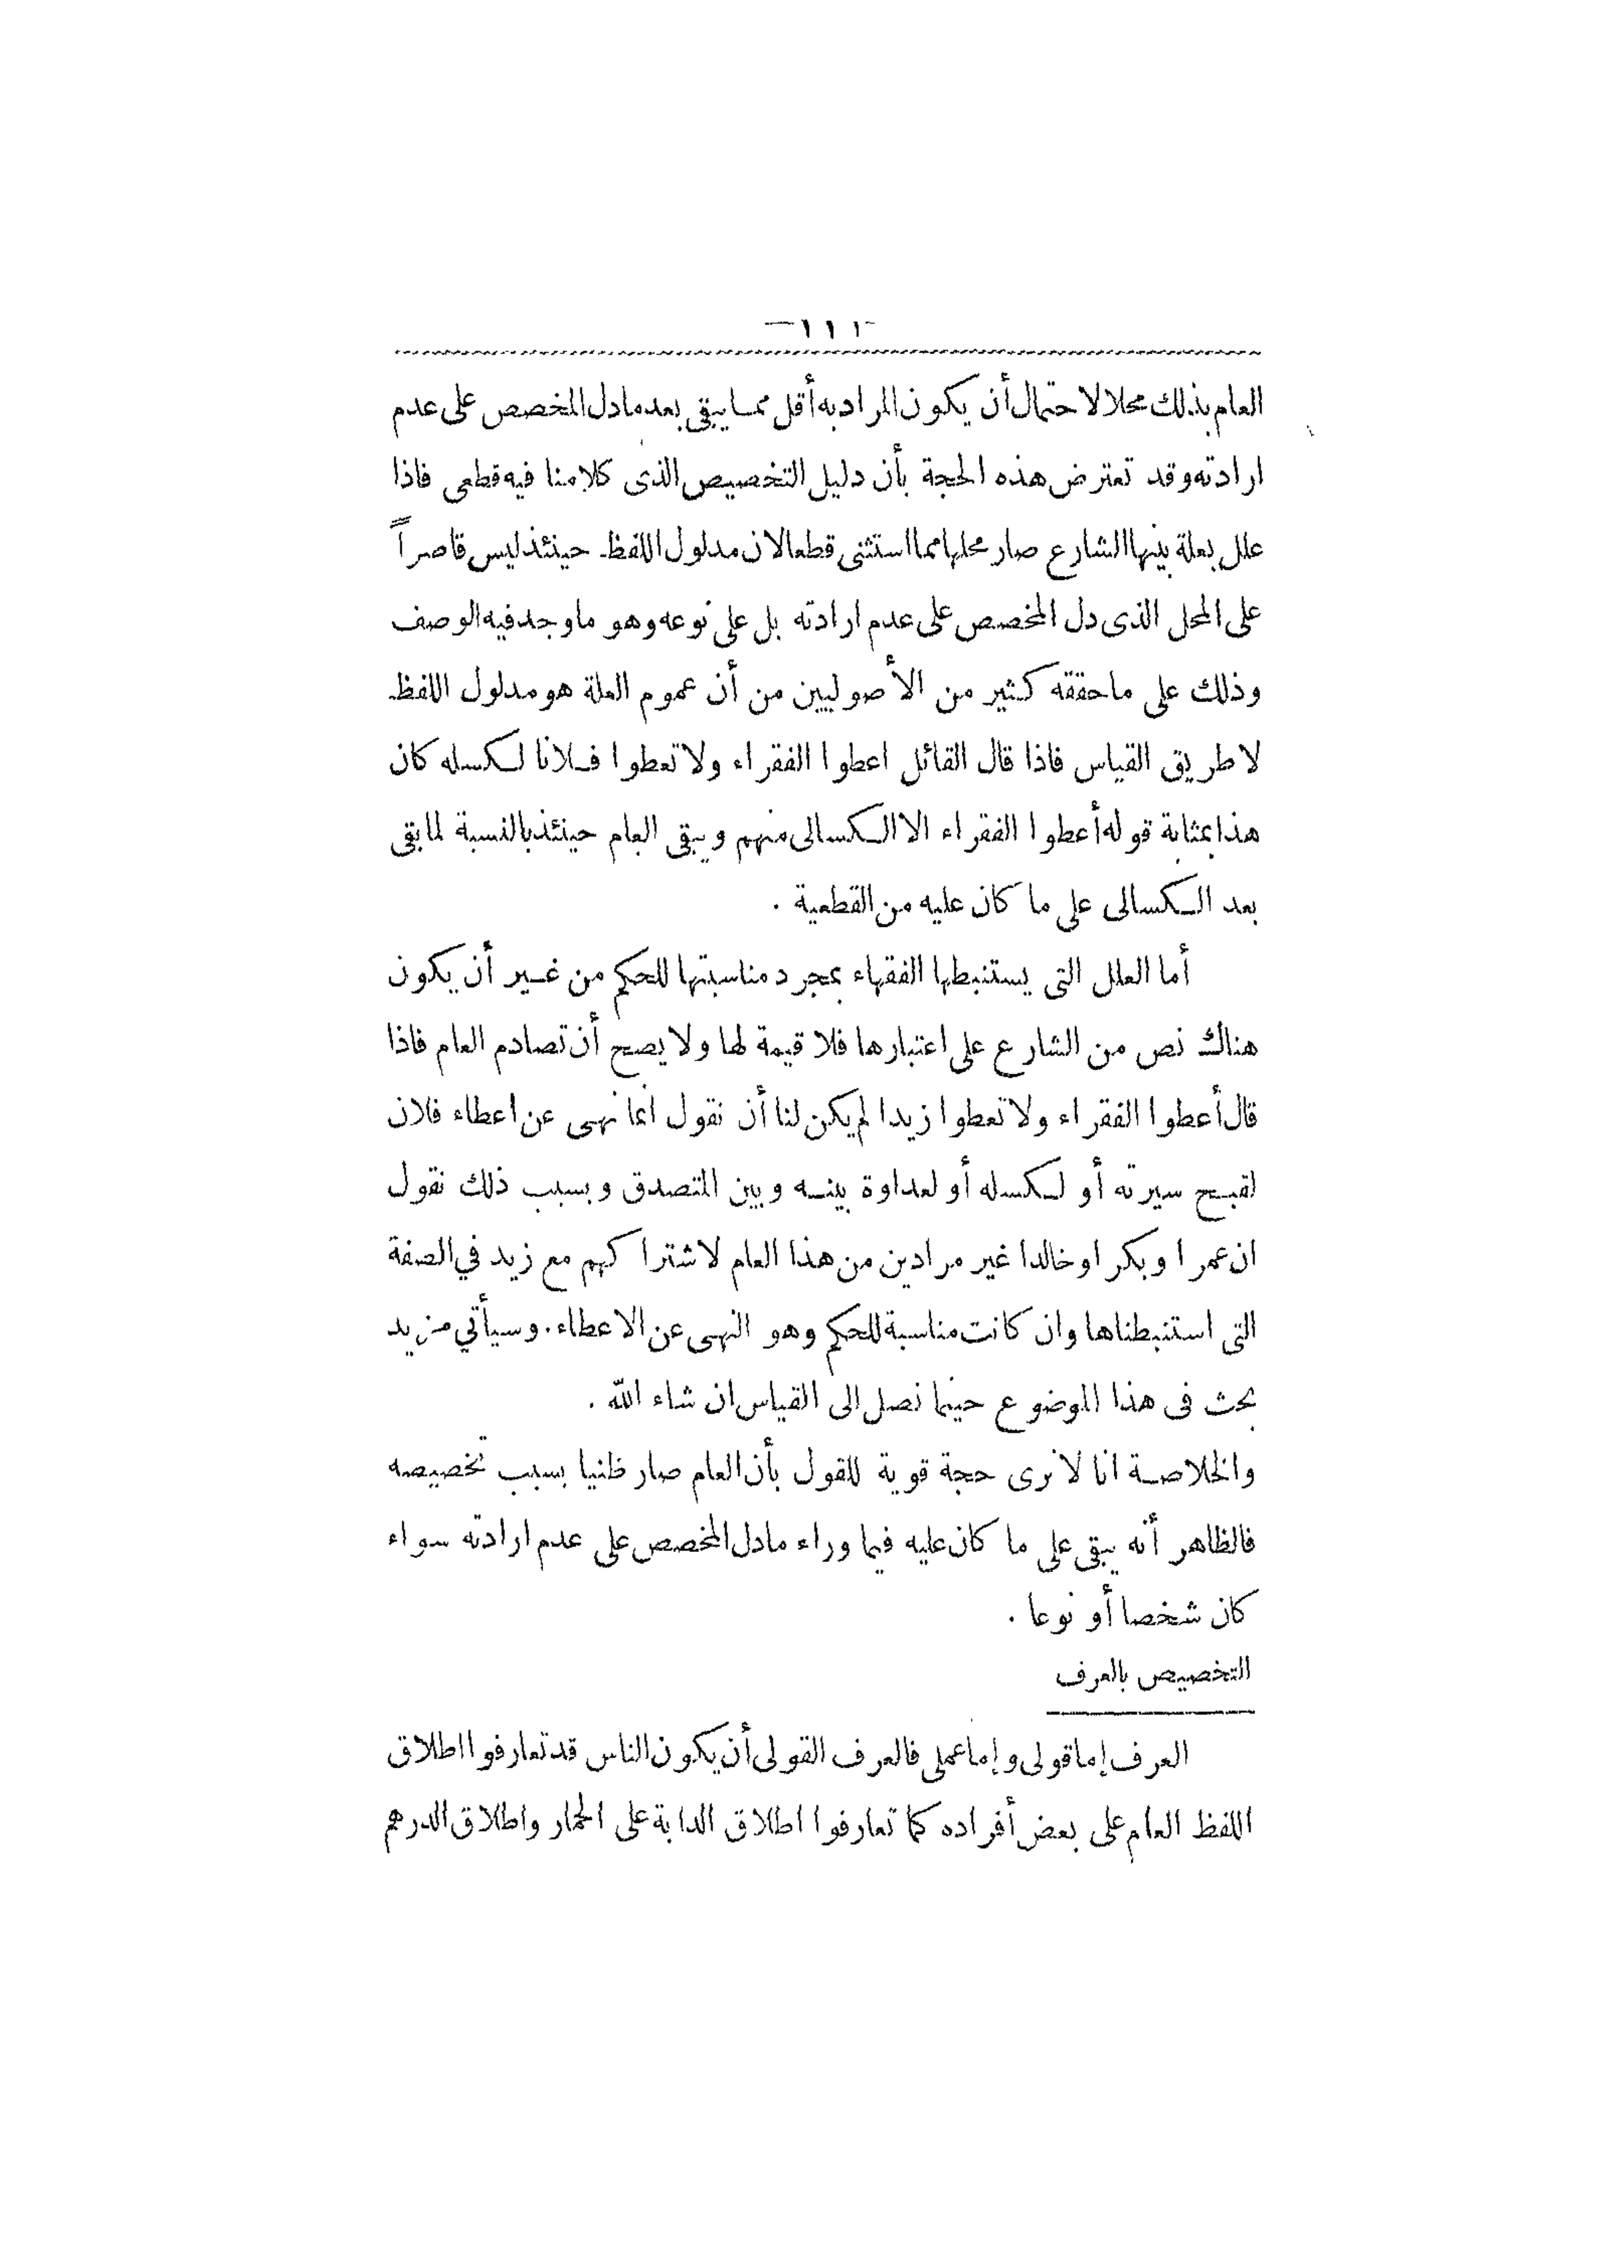 —١١١—
العام بذلك محلا لاحتمال أن يكون المراد به أقل مما يبقى بعد ما دل المخصص على عدم
ارادته وقد تعترض هذه الحجة بأن دليل التخصيص الذى كلامنا فيه قطعى فاذا
علل بعلة بينها الشارع صار محلها مما استثنى قطعا لان مدلول اللفظ حينئذ ليس قاصراً
على المحل الذى دل المخصص على عدم ارادته بل على نوعه وهو ما وجد فيه الوصف
وذلك على ما حققه كثير من الأصوليين من أن عموم العلة هو مدلول اللفظ
لا طريق القياس فاذا قال القائل اعطوا الفقراء ولا تعطوا فلانا لكسله كان
هذا بمثابة قوله أعطوا الفقراء الا الكسالى منهم ويبقى العام حينئذ بالنسبة لما بقى
بعد الكسالى على ما كان عليه من القطعية .
أما العلل التى يستنبطها الفقهاء بمجرد مناسبتها للحكم من غير أن يكون
هناك نص من الشارع على اعتبارها فلا قيمة لها ولا يصح أن تصادم العام فاذا
قال أعطوا الفقراء ولا تعطوا زيدا لم يكن لنا أن نقول انما نهى عن اعطاء فلان
لقبح سيرته أو لكسله أو لعداوة بينه وبين المتصدق وبسبب ذلك نقول
ان عمرا وبكرا وخالدا غير مرادين من هذا العام لاشتراكهم مع زيد في الصفة
التى استنبطناها وان كانت مناسبة للحكم وهو النهى عن الاعطاء . وسيأتي مزيد
بحث فى هذا الموضوع حينما نصل الى القياس ان شاء الله .
والخلاصة انا لا نرى حجة قوية للقول بأن العام صار ظنيا بسبب تخصيصه
فالظاهر أنه يبقى على ما كان عليه فيما وراء ما دل المخصص على عدم ارادته سواء
كان شخصا أو نوعا .
التخصيص بالعرف
العرف إما قولى وإما عملى فالعرف القولى أن يكون الناس قد تعارفوا اطلاق
اللفظ العام على بعض أفراده كما تعارفوا اطلاق الدابة على الحمار واطلاق الدرهم